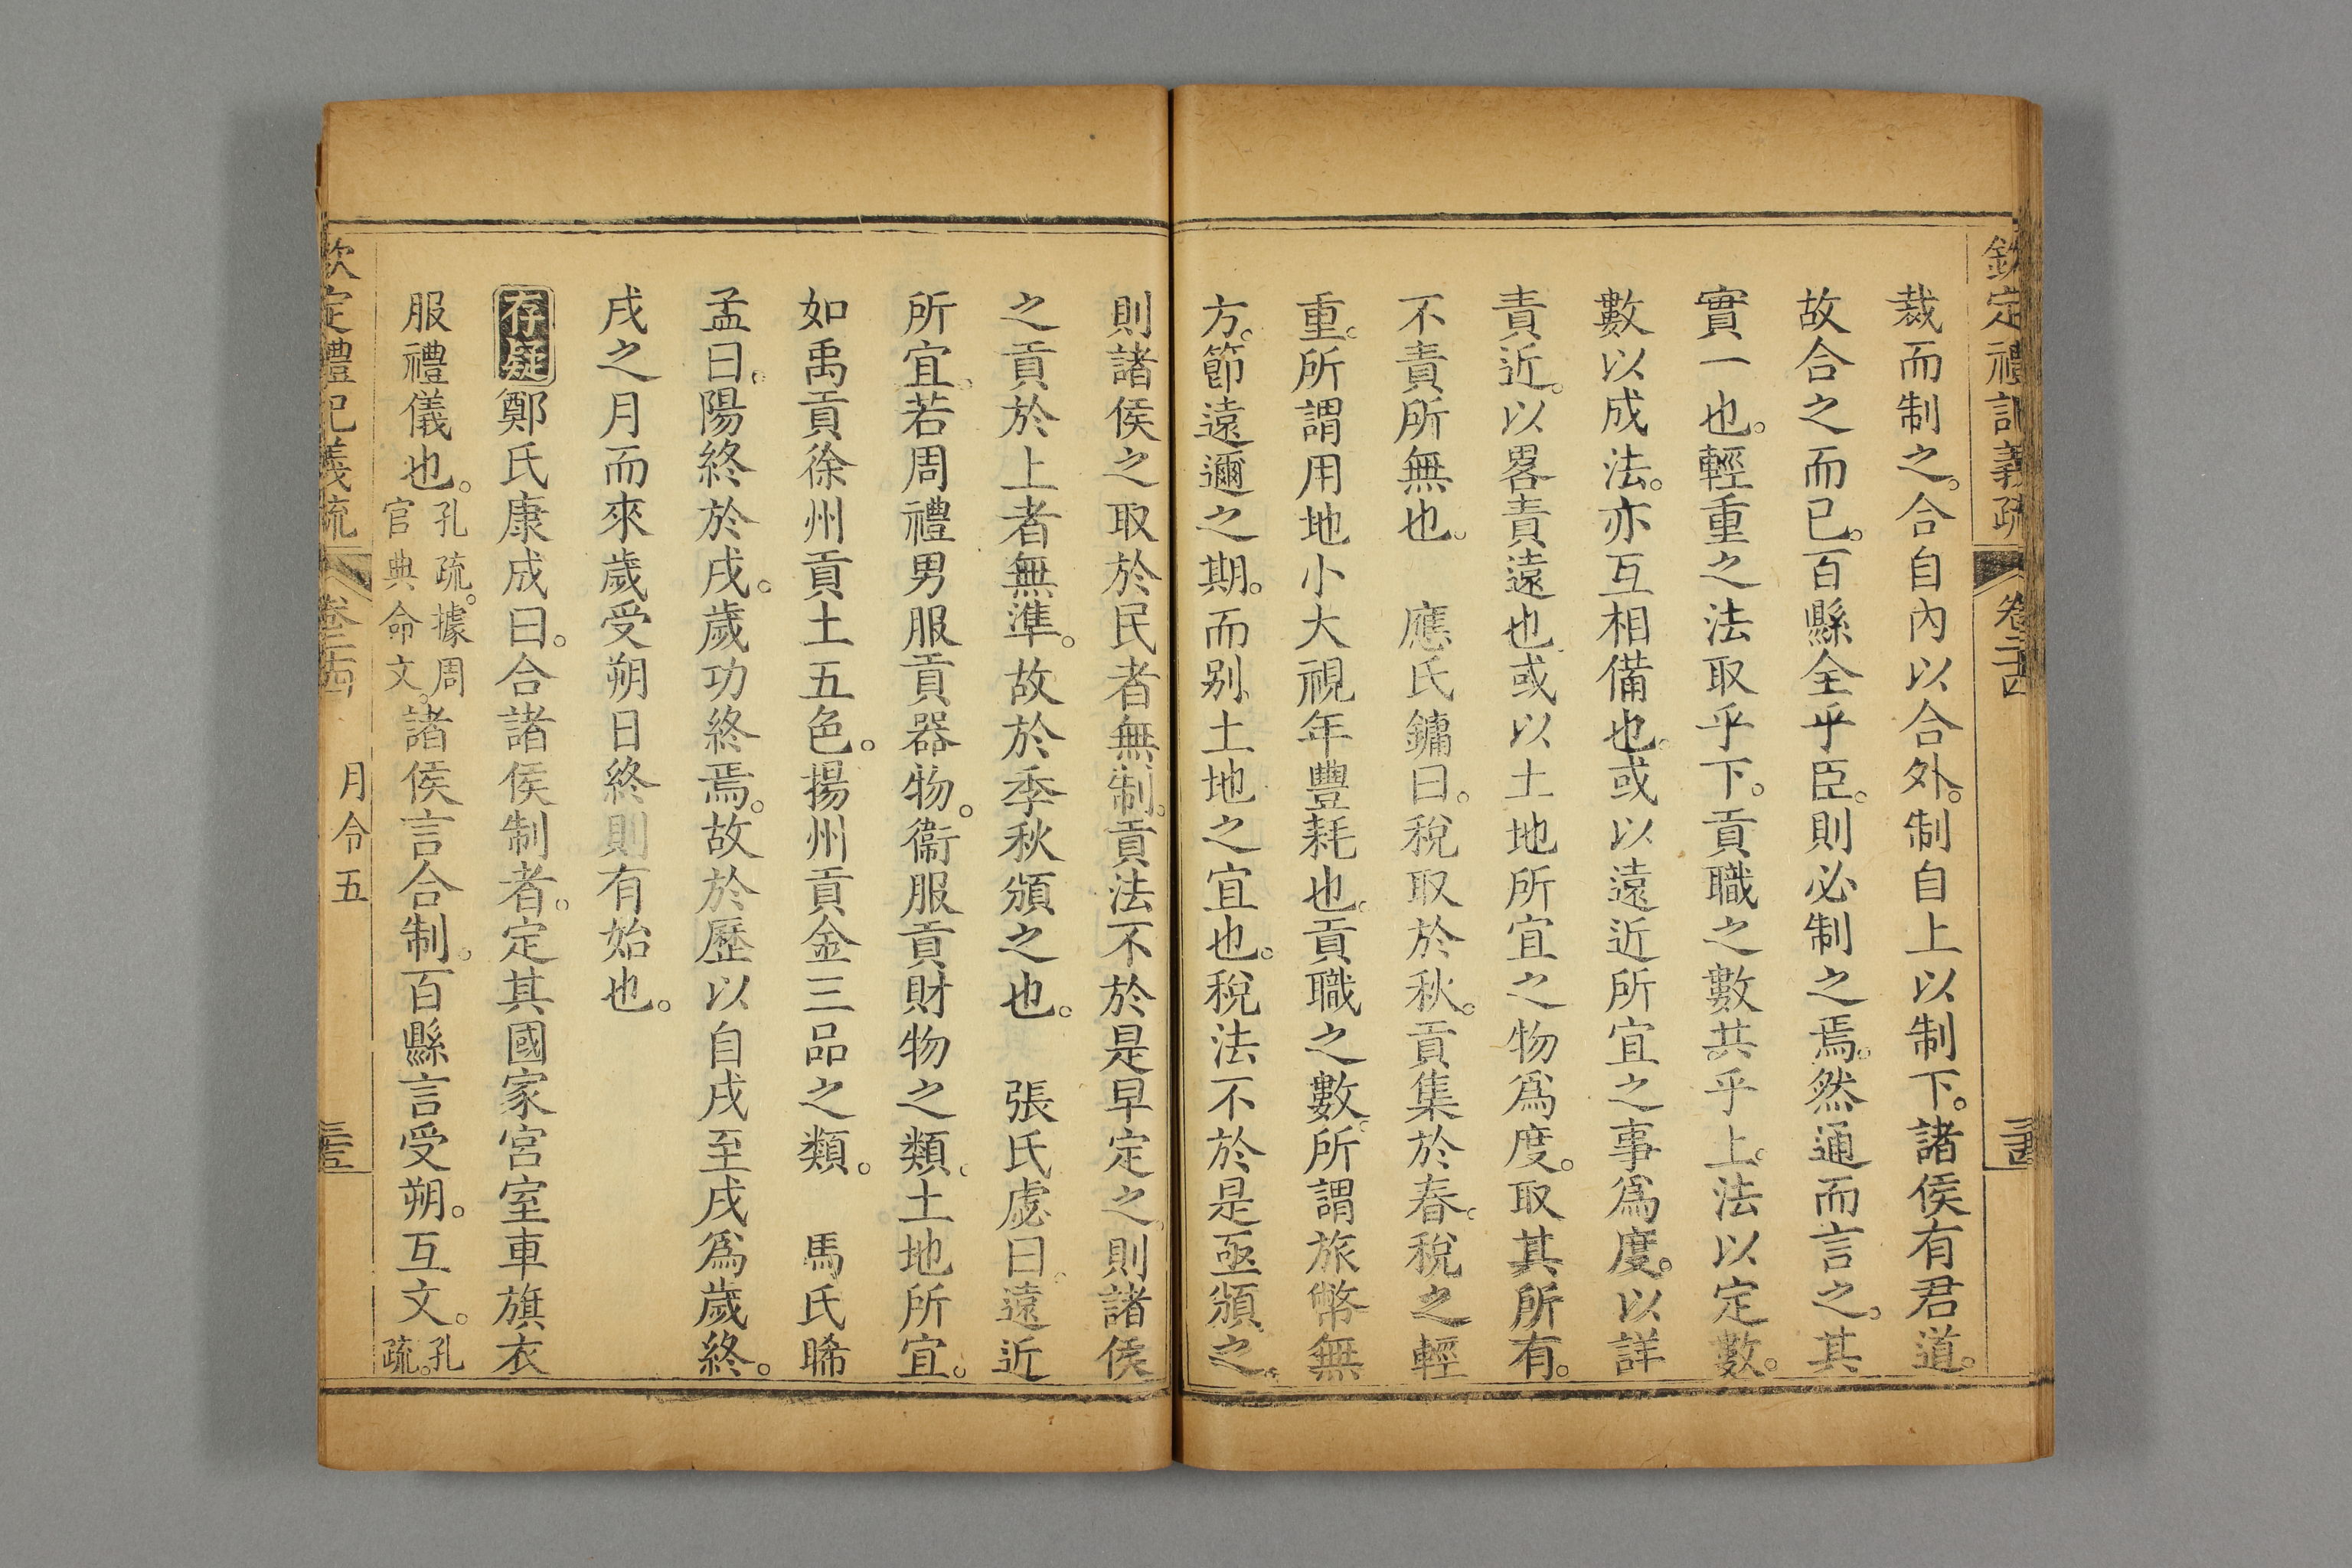 欽定禮記義疏 卷二十四
裁而制之。合自內以合外。制自上以制下。諸侯有君道。
故合之而已。百縣全乎臣。則必制之焉。然通而言之。其
實一也。輕重之法取乎下。貢職之數共乎上。法以定數。
數以成法。亦互相備也。或以遠近所宜之事爲度。以詳
責近。以畧責遠也。或以土地所宜之物爲度。取其所有。
不責所無也。 應氏鏞曰。稅取於秋。貢集於春。稅之輕
重。所謂用地小大視年豐耗也。貢職之數。所謂旅幣無
方。節遠邇之期。而别土地之宜也。稅法不於是亟頒之。
則諸侯之取於民者無制。貢法不於是早定之。則諸侯
之貢於上者無準。故於季秋頒之也。 張氏慮曰。遠近
所宜。若周禮男服貢器物。衞服貢財物之類。土地所宜。
如禹貢徐州貢土五色。揚州貢金三品之類。 馬氏晞
孟曰。陽終於戌。歲功終焉。故於歷以自戌至戌爲歲終。
戌之月而來歲受朔日終則有始也。
存疑鄭氏康成曰。合諸侯制者。定其國家宮室車旗衣
服禮儀也。孔疏。據周官典命文。諸侯言合制。百縣言受朔。互文。孔疏。
欽定禮記義疏 卷二十四 月令五